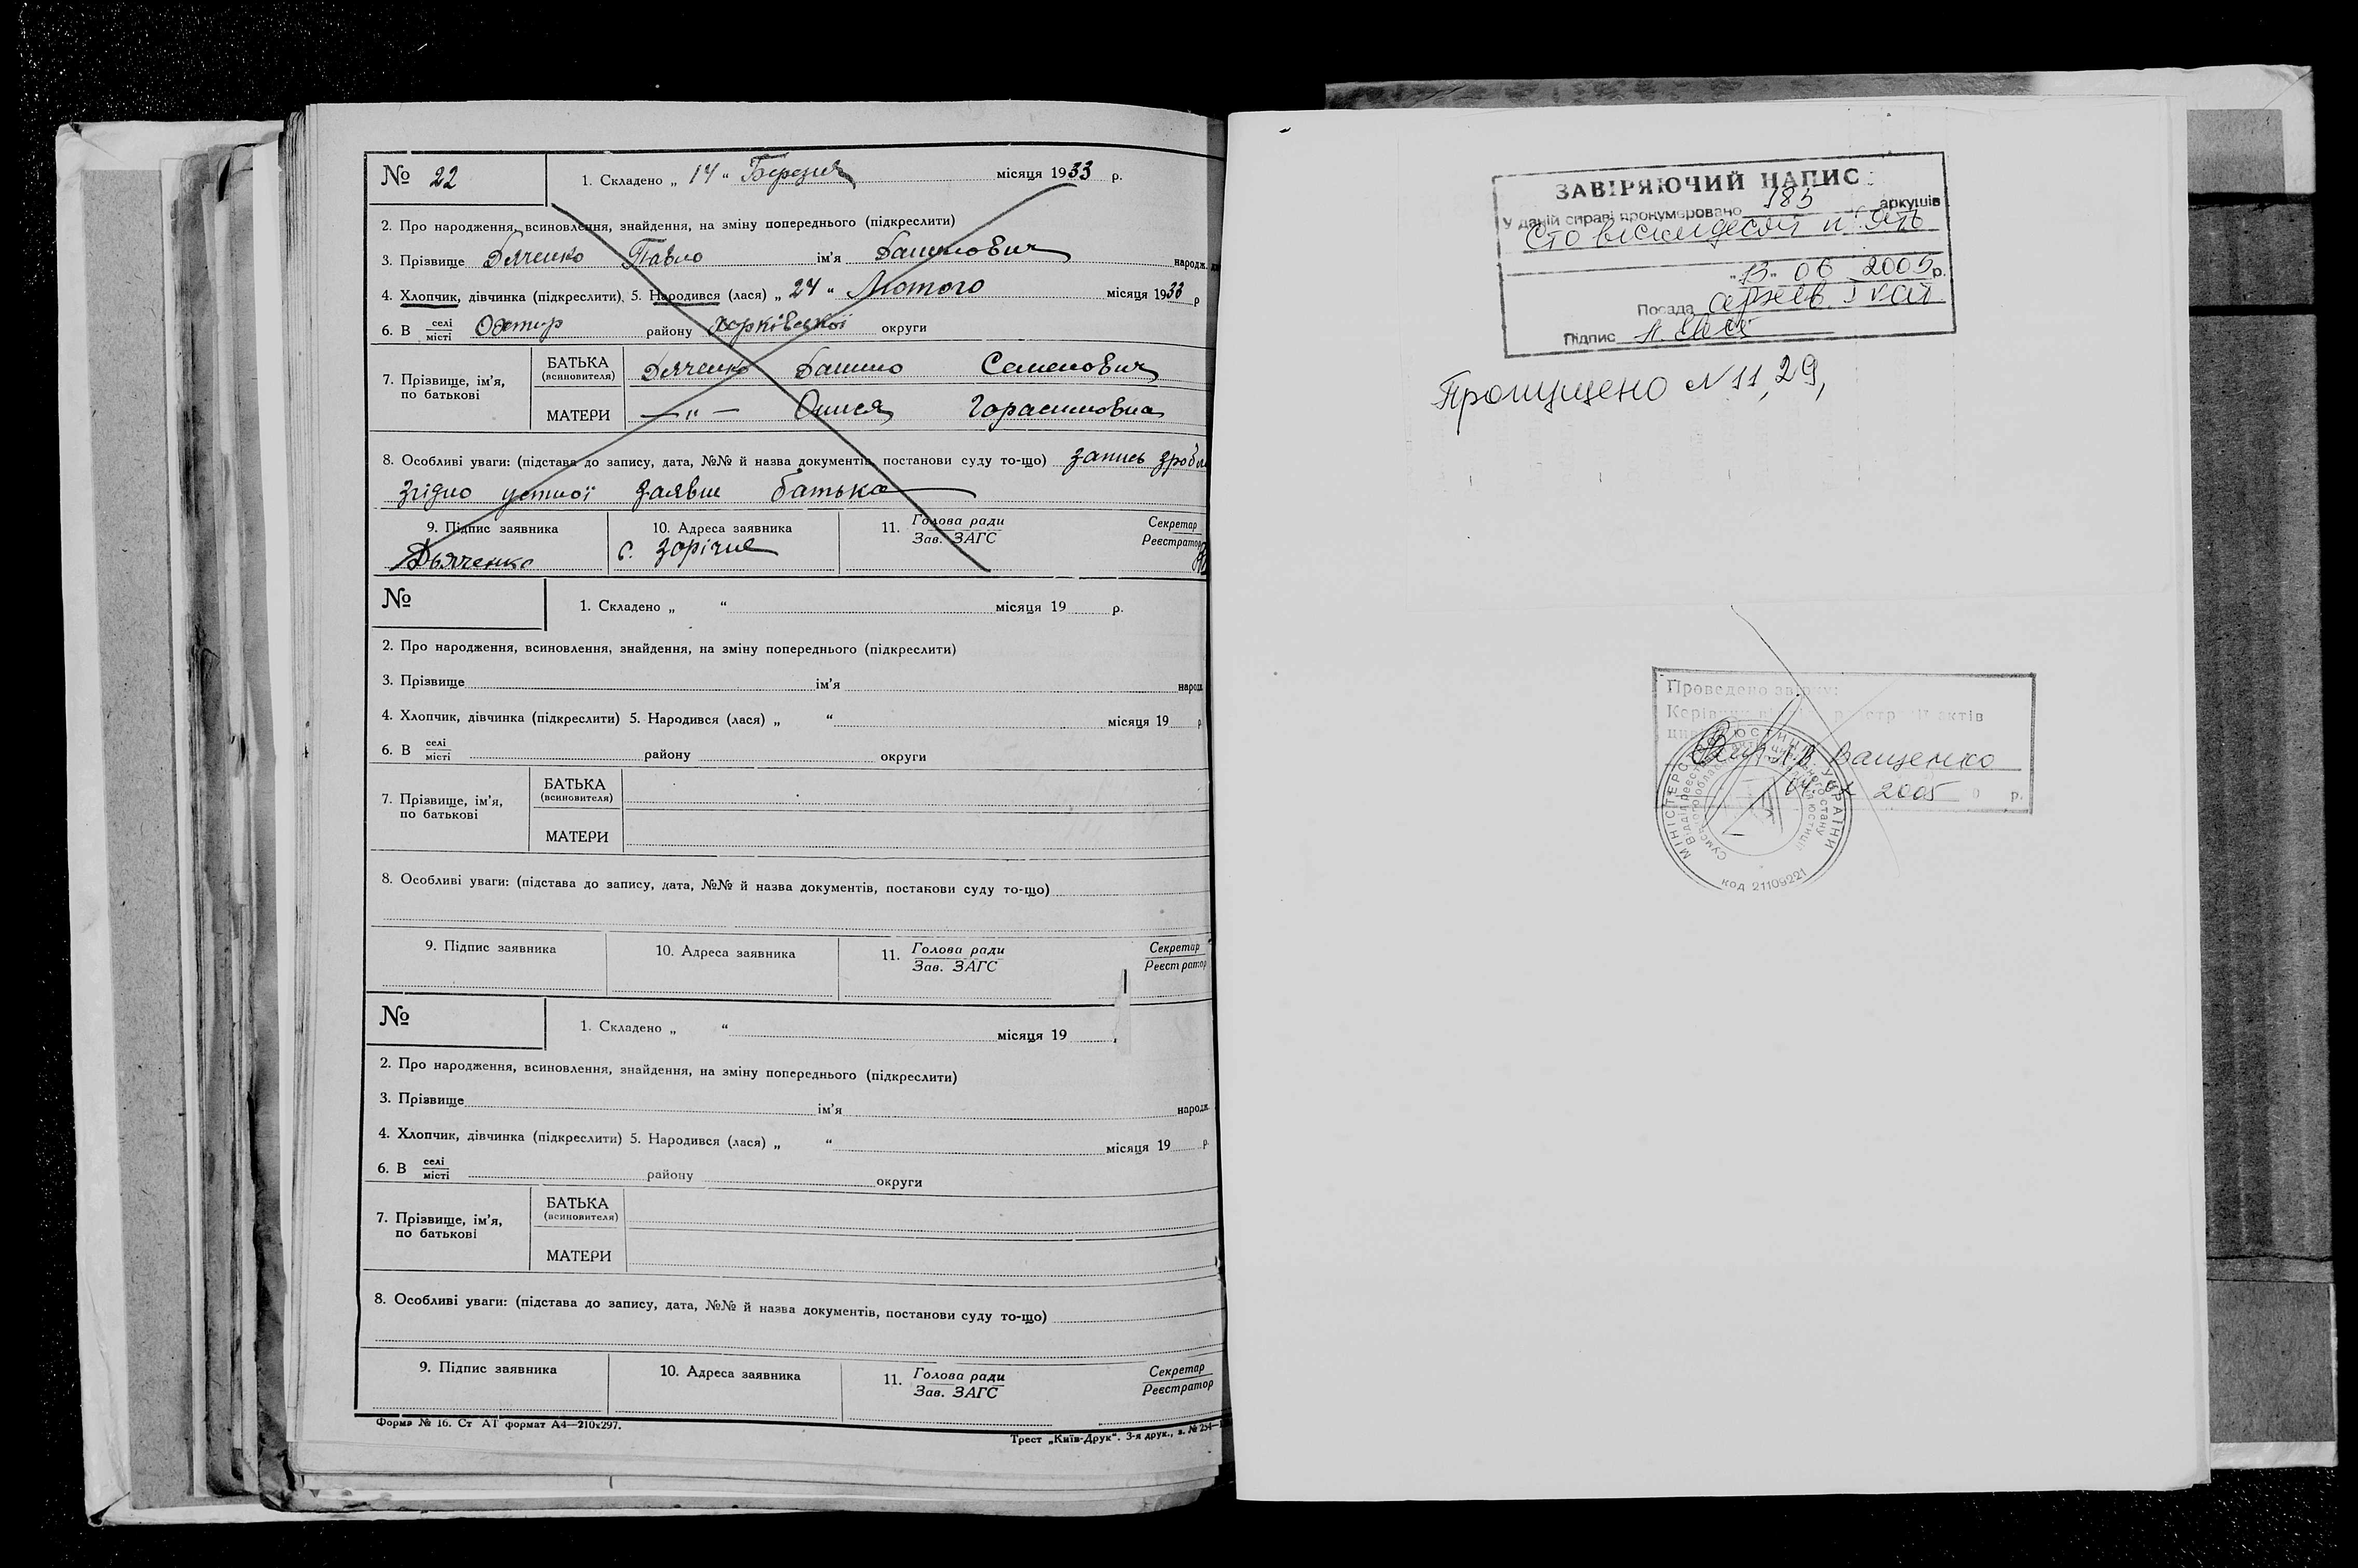 № 22
1. Складено „ 14 “ Березня місяця 1933 р.
2. Про народження, всиновлення, знайдення, на зміну попереднього (підкреслити)
3. Прізвище Дяченко Павло ім'я Данилович народж.
4. Хлопчик, дівчинка (підкреслити), 5. Народився (лася) „ 24 “ Лютого місяця 1933 р
6. В селі місті Охтир району Харківської округи
7. Прізвище, ім'я, по батькові
БАТЬКА (всиновителя) Дяченко Данило Семенович
МАТЕРИ — „ — Горасимовна
8. Особливі уваги: (підстава до запису, дата, №№ й назва документів, постанови суду то-що) запись
згідно устної заявки батька
9. Підпис заявника 10. Адреса заявника 11. Голова ради Зав. ЗАГС Секретар Реєстратор
Дьяченко с. Зарічне
№
1. Складено „ “ місяця 19 р.
2. Про народження, всиновлення, знайдення, на зміну попереднього (підкреслити)
3. Прізвище ім'я
4. Хлопчик, дівчинка (підкреслити) 5. Народився (лася) „ “ місяця 19 р
6. В селі місті району округи
7. Прізвище, ім'я, по батькові
БАТЬКА (всиновителя)
МАТЕРИ
8. Особливі уваги: (підстава до запису, дата, №№ й назва документів, постанови суду то-що)
9. Підпис заявника 10. Адреса заявника 11. Голова ради Зав. ЗАГС Секретар Реєстратор
№
1. Складено „ “ місяця 19
2. Про народження, всиновлення, знайдення, на зміну попереднього (підкреслити)
3. Прізвище ім'я народж.
4. Хлопчик, дівчинка (підкреслити) 5. Народився (лася) „ “ місяця 19 р.
6. В селі місті району округи
7. Прізвище, ім'я, по батькові
БАТЬКА (всиновителя)
МАТЕРИ
8. Особливі уваги: (підстава до запису, дата, №№ й назва документів, постанови суду то-що)
9. Підпис заявника 10. Адреса заявника 11. Голова ради Зав. ЗАГС Секретар Реєстратор
Форма № 16. Ст АТ формат А4—210x297.
Трест „Київ-Друк“. 3-я друк., з. № 254—
ЗАВІРЯЮЧИЙ НАПИС
У даній справі пронумеровано 185 аркушів
Сто вісімдесят п'ять
„13“ 06 2005 р.
Посада архів. І кат
Підпис
Пропущено № 11, 29,
Проведено звірку:
Ващенко
2005 р.
МІНІСТЕРСТВО ЮСТИЦІЇ УКРАЇНИ
код 21109221